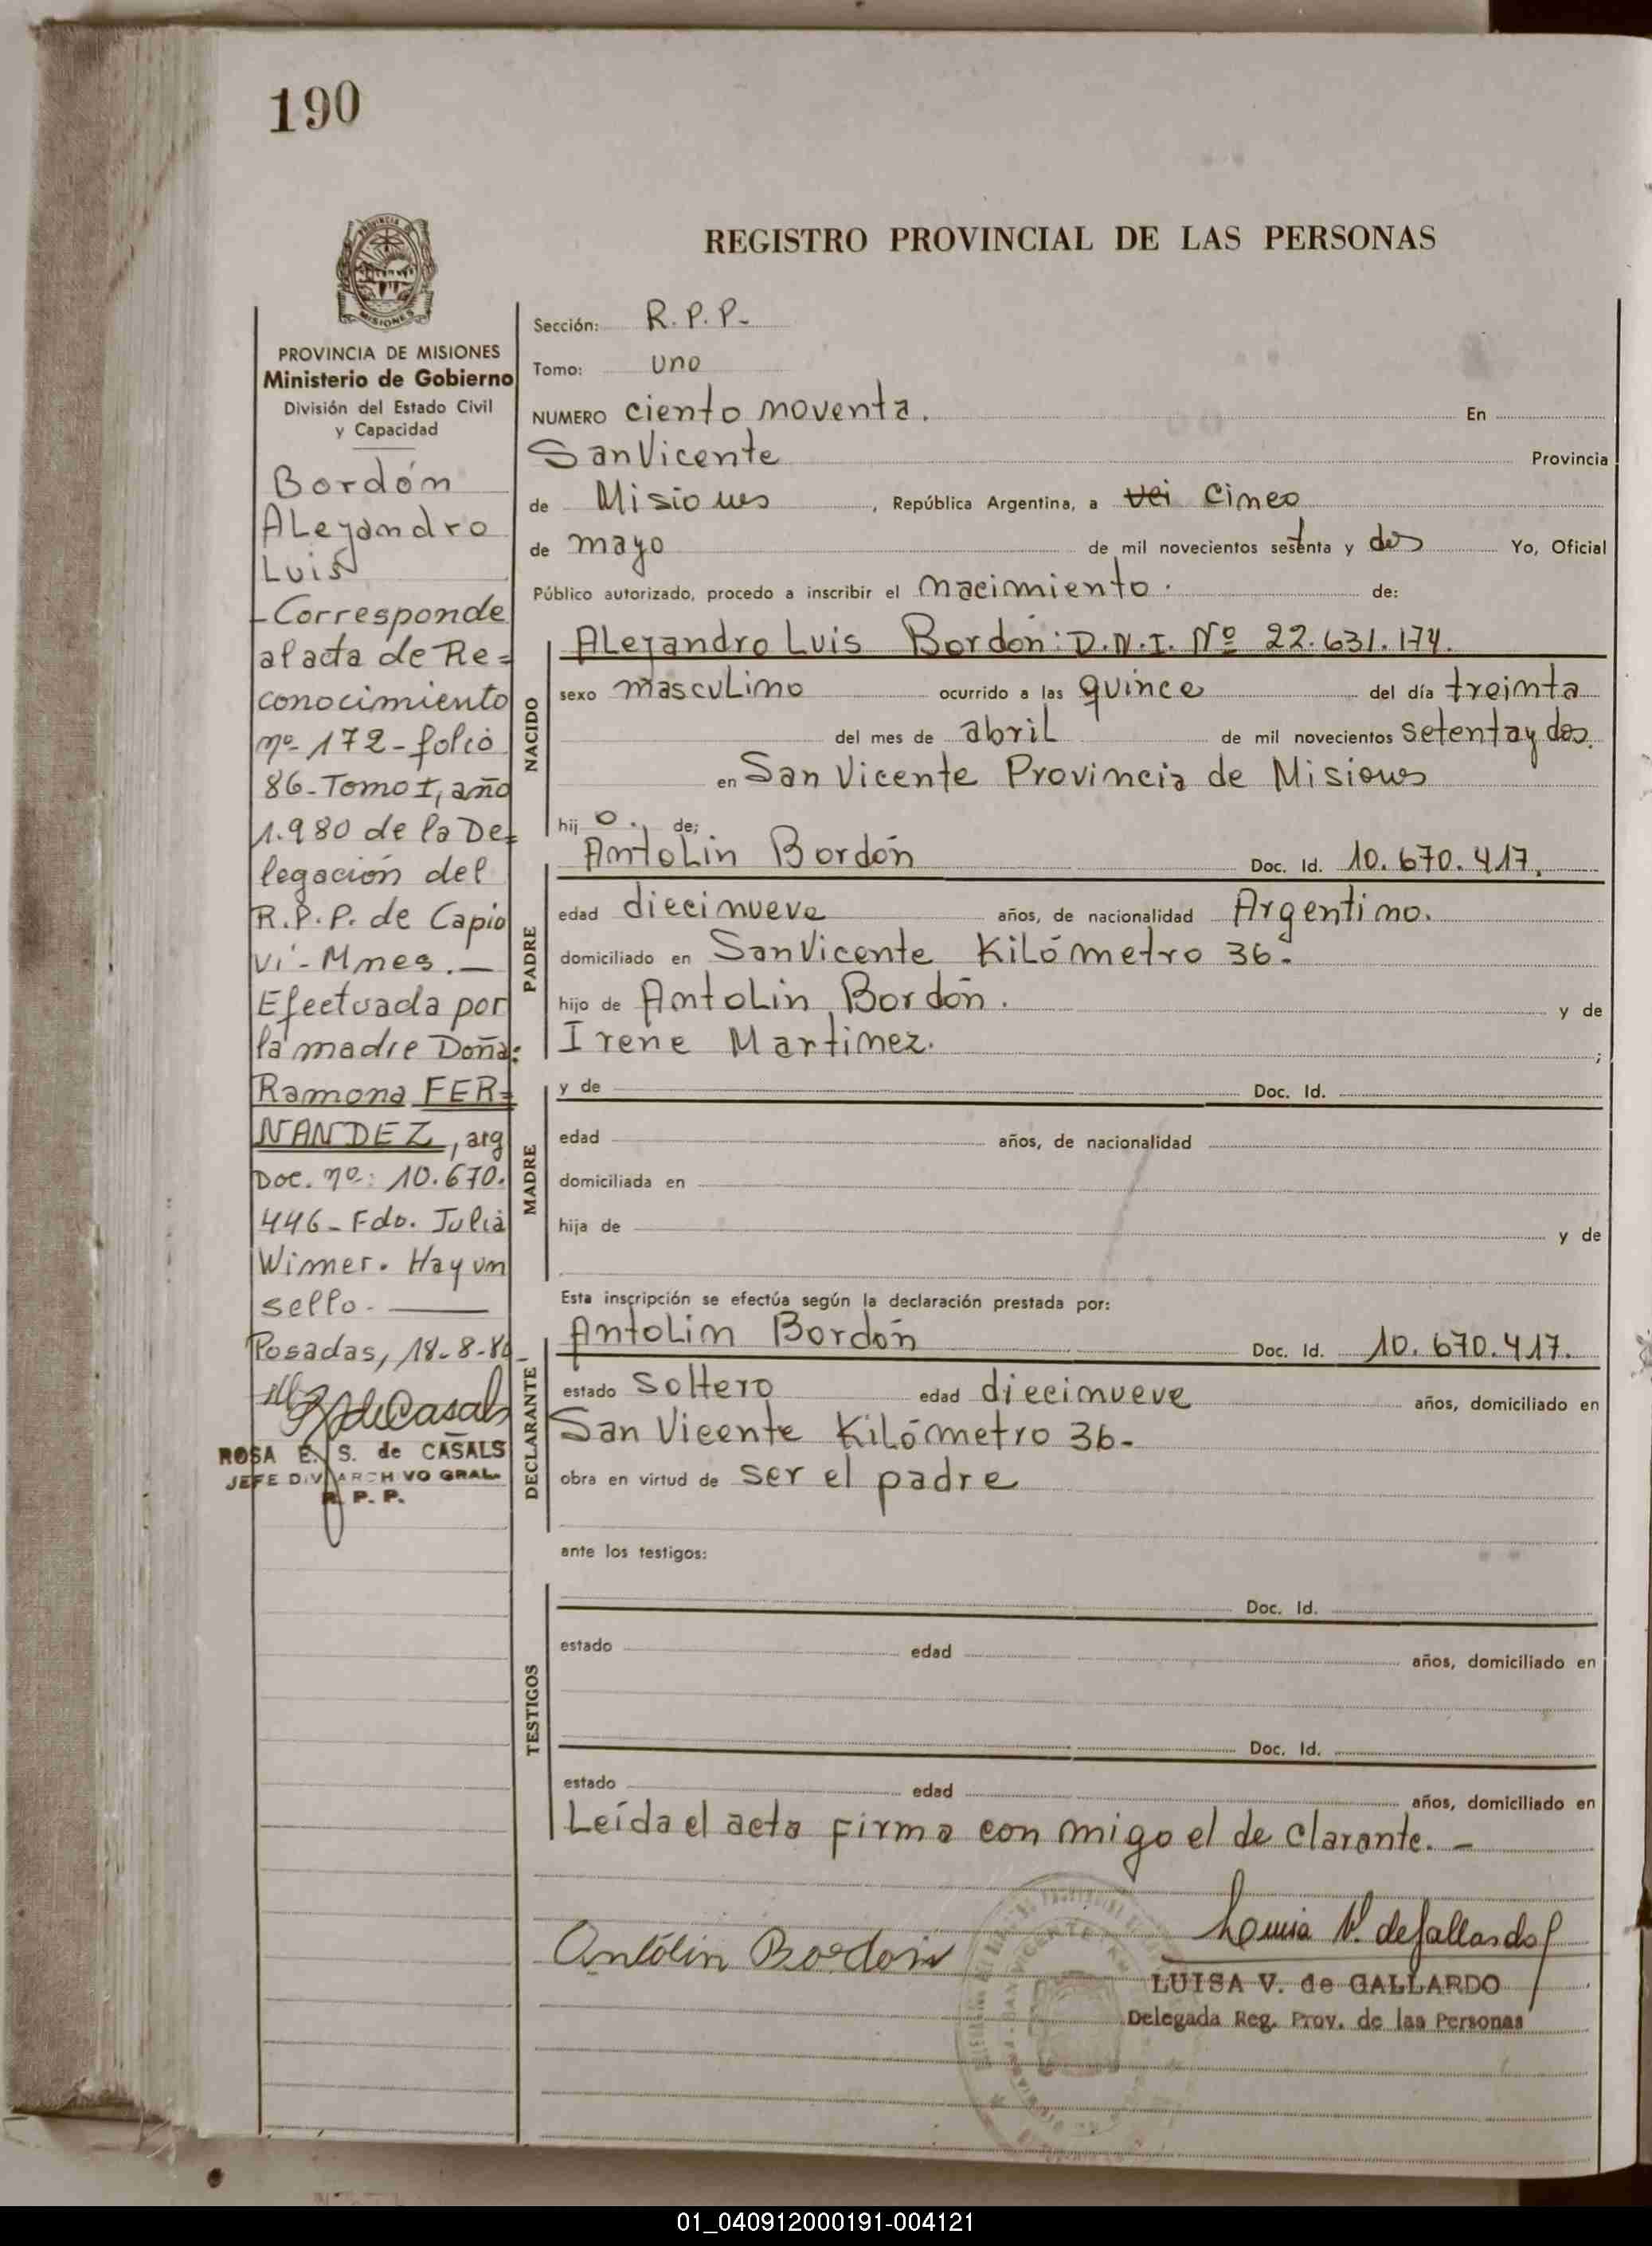 190
REGISTRO PROVINCIAL DE LAS PERSONAS
PROVINCIA DE MISIONES
Ministerio de Gobierno
División del Estado Civil
y Capacidad
Bordón
ALejandro
Luis
- Corresponde
al acta de Re=
conocimiento
nº 172 - folio
86 - Tomo I, año
1.980 de la De=
legación del
R.P.P. de Capio
ví - Mnes. —
Efectuada por
la madre Doña:
Ramona FER=
NANDEZ, arg
Doc. nº: 10.670.
446 - Fdo. Julia
Wimer. Hay un
sello. —
Posadas, 18-8-80
ROSA E. S. de CASALS
JEFE DIV ARCHIVO GRAL.
R. P. P.
Sección: R.P.P.-
Tomo: uno
NUMERO ciento noventa. En
San Vicente Provincia
de Misiones, República Argentina, a vei cinco
de mayo de mil novecientos setenta y dos Yo, Oficial
Público autorizado, procedo a inscribir el nacimiento. de:
NACIDO
ALejandro Luis Bordón: D.N.I. Nº 22.631.174.
sexo mascuLino ocurrido a las quince del día treinta
del mes de abril de mil novecientos setenta y dos.
en San Vicente Provincia de Misiones
hij o. de:
PADRE
AntoLin Bordón Doc. Id. 10.670.417.
edad diecinueve años, de nacionalidad Argentino.
domiciliado en San Vicente KiLómetro 36.
hijo de AntoLin Bordón. y de
Irene Martinez. ;
MADRE
y de Doc. Id.
edad años, de nacionalidad
domiciliada en
hija de y de
Esta inscripción se efectúa según la declaración prestada por:
DECLARANTE
AntoLin Bordón Doc. Id. 10.670.417.
estado soLtero edad diecinueve años, domiciliado en
San Vicente KiLómetro 36-
obra en virtud de ser el padre
ante los testigos:
TESTIGOS
Doc. Id.
estado edad años, domiciliado en
Doc. Id.
estado edad años, domiciliado en
Leída el acta firma con migo el de clarante. -
Antolin Bordon
Luisa V. de Gallardo
LUISA V. de GALLARDO
Delegada Reg. Prov. de las Personas
01_040912000191-004121